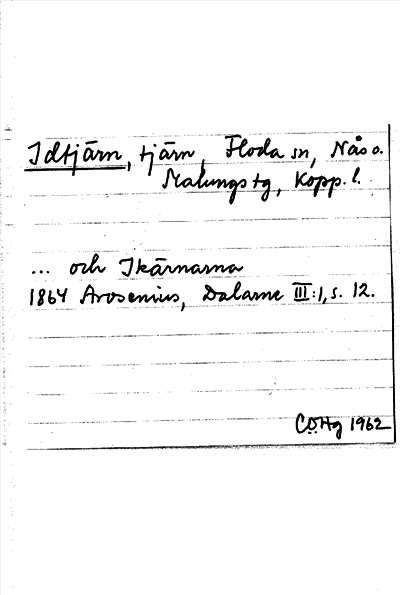 Idtjärn, tjärn, Floda sn, Nås o.
Malungs tg, Kopp. l.
... och Ikärnarna
1864 Arosenius, Dalarne III:1, s. 12.
CÖHg 1962